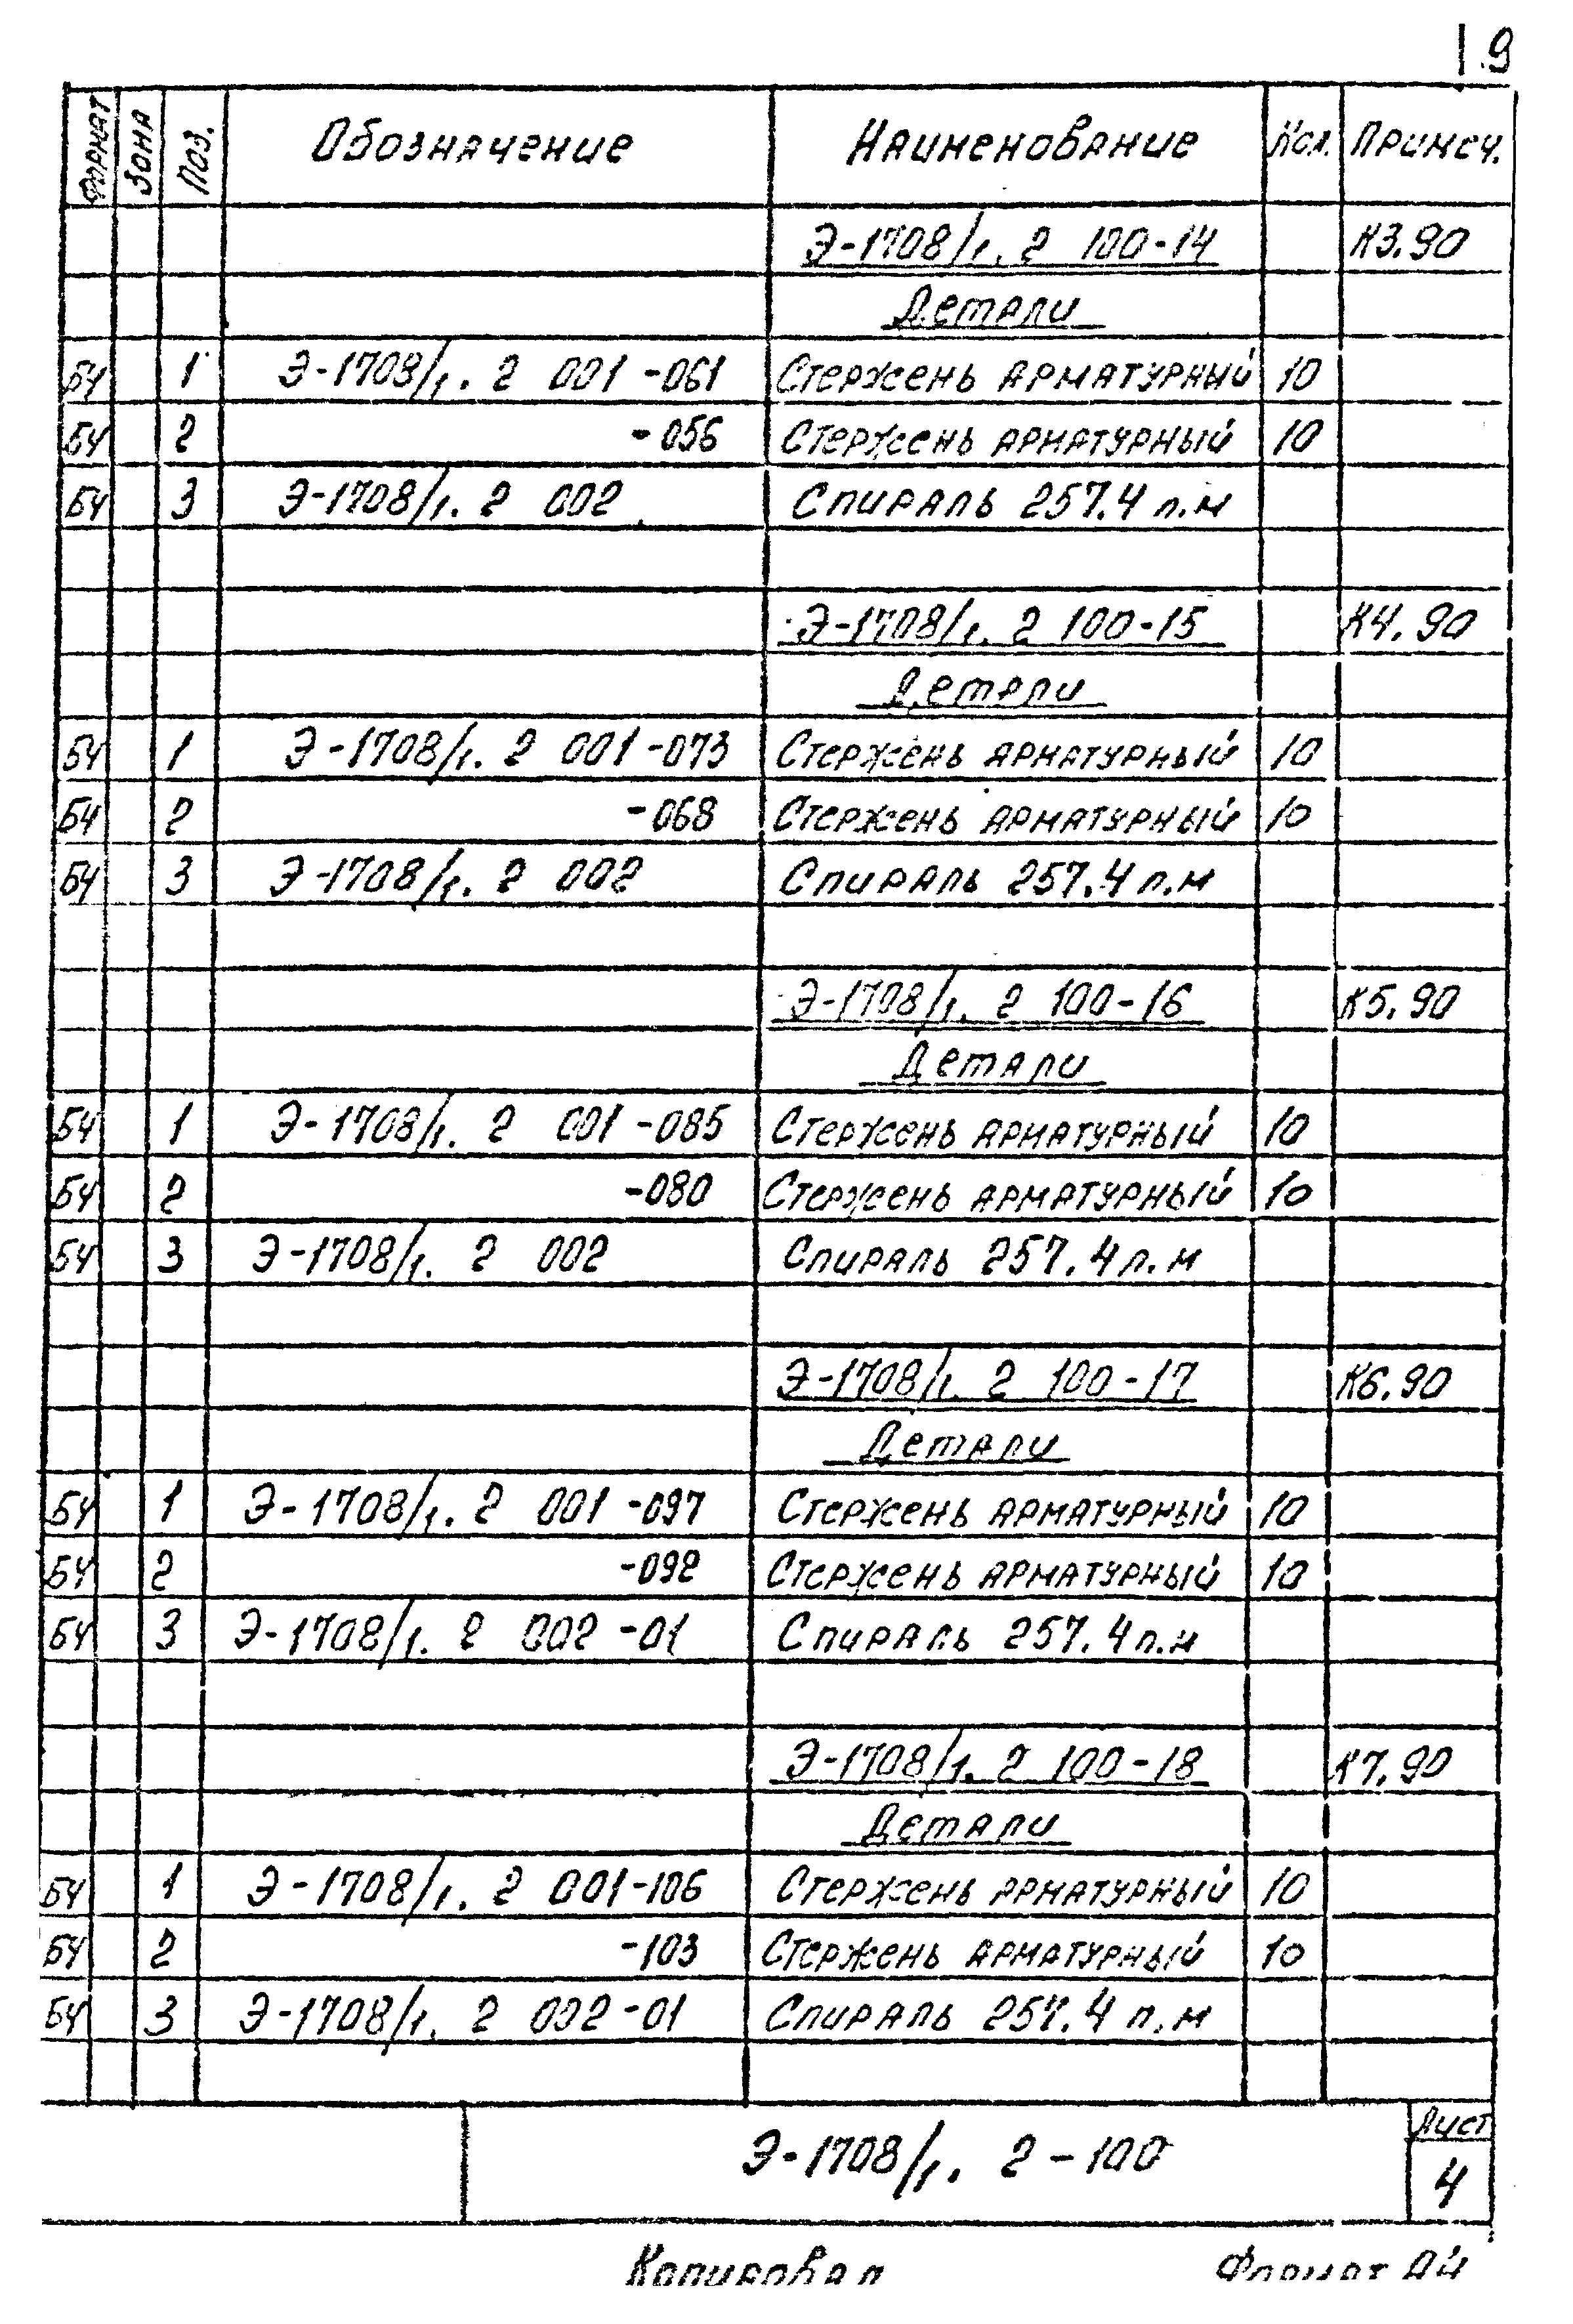 19
Формат Зона Поз. Обозначение Наименование Кол. Примеч.
Э-1708/1. 2 100-14 К3.90
Детали
БЧ 1 Э-1708/1. 2 001-061 Стержень арматурный 10
БЧ 2 -056 Стержень арматурный 10
БЧ 3 Э-1708/1. 2 002 Спираль 257.4 п.м
Э-1708/1. 2 100-15 К4.90
Детали
БЧ 1 Э-1708/1. 2 001-073 Стержень арматурный 10
БЧ 2 -068 Стержень арматурный 10
БЧ 3 Э-1708/1. 2 002 Спираль 257.4 п.м
Э-1708/1. 2 100-16 К5.90
Детали
БЧ 1 Э-1708/1. 2 001-085 Стержень арматурный 10
БЧ 2 -080 Стержень арматурный 10
БЧ 3 Э-1708/1. 2 002 Спираль 257.4 п.м
Э-1708/1. 2 100-17 К6.90
Детали
БЧ 1 Э-1708/1. 2 001-097 Стержень арматурный 10
БЧ 2 -092 Стержень арматурный 10
БЧ 3 Э-1708/1. 2 002-01 Спираль 257.4 п.м
Э-1708/1. 2 100-18 К7.90
Детали
БЧ 1 Э-1708/1. 2 001-106 Стержень арматурный 10
БЧ 2 -103 Стержень арматурный 10
БЧ 3 Э-1708/1. 2 002-01 Спираль 257.4 п.м
Э-1708/1. 2-100 Лист
4
Копировал Формат А4